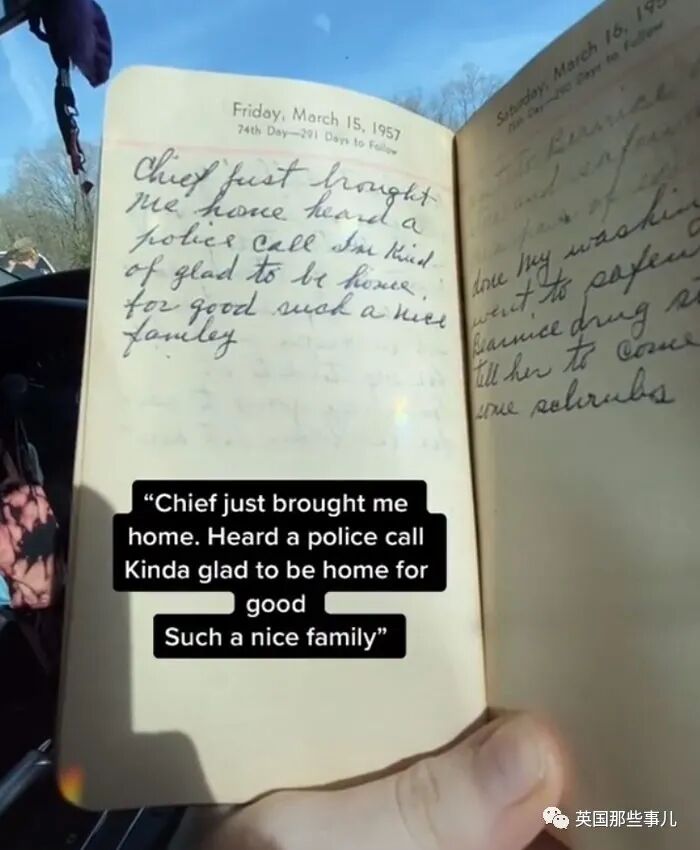 Friday, March 15, 1957
74th Day—291 Days to Follow
Chief just brought
me home heard a
police call Im Kind
of glad to be home.
for good such a nice
famley
Saturday, March 16, 195
Days to Follow
to Bearnice
and
of
done my washin
went to
Bearnice drug st
tell her to come
some schrubs
“Chief just brought me
home. Heard a police call
Kinda glad to be home for
good
Such a nice family”
英国那些事儿